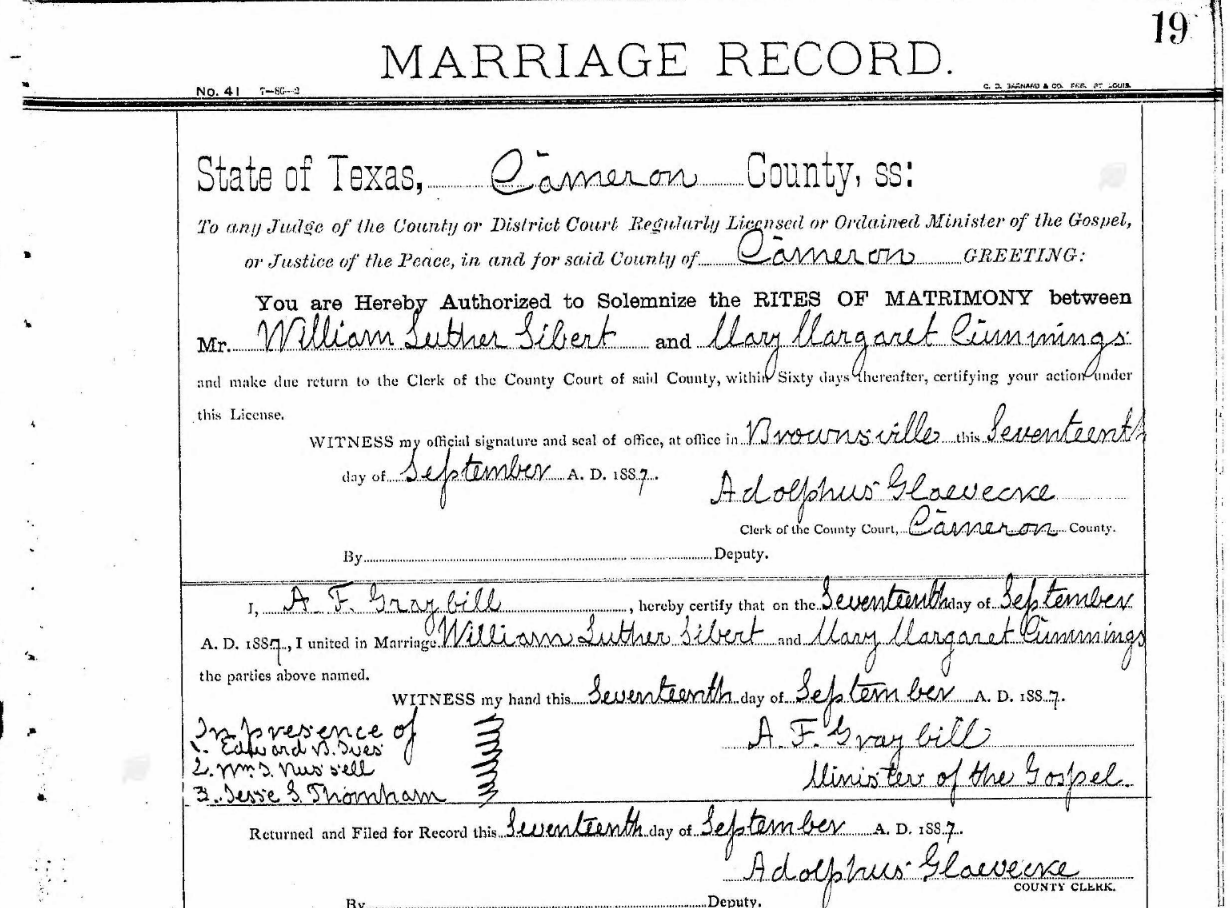 19
MARRIAGE RECORD.
No. 41 7-86-2 C. D. BARNARD & CO. PRS. ST LOUIS.
State of Texas, Cameron County, ss:
To any Judge of the County or District Court Regularly Licensed or Ordained Minister of the Gospel,
or Justice of the Peace, in and for said County of Cameron GREETING:
You are Hereby Authorized to Solemnize the RITES OF MATRIMONY between
Mr. William Luther Sibert and Mary Margaret Cummings
and make due return to the Clerk of the County Court of said County, within Sixty days thereafter, certifying your action under
this License.
WITNESS my official signature and seal of office, at office in Brownsville this Seventeenth
day of September A. D. 1887.
Adolphus Glaevecke
Clerk of the County Court, Cameron County.
By Deputy.
I, A. F. Graybill, hereby certify that on the Seventeenth day of September
A. D. 1887, I united in Marriage William Luther Sibert and Mary Margaret Cummings
the parties above named.
WITNESS my hand this Seventeenth day of September A. D. 1887.
In presence of
A. F. Graybill
1. Edward B. Ives
2. Wm. D. Russell
Minister of the Gospel.
3. Jesse S. Thornham
Returned and Filed for Record this Seventeenth day of September A. D. 1887.
Adolphus Glaevecke
COUNTY CLERK.
By Deputy.